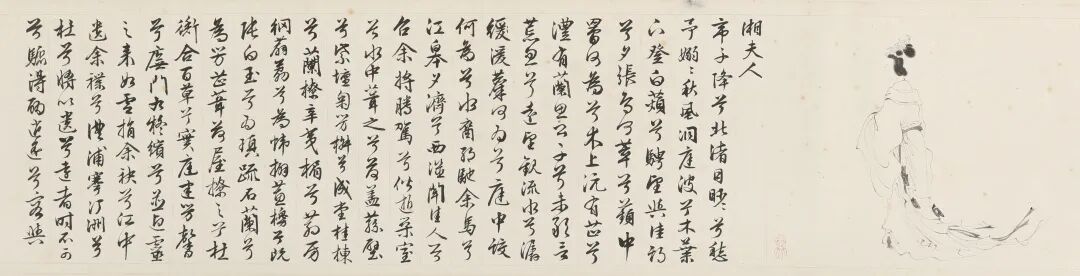 湘夫人
帝子降兮北渚目眇〻兮愁
予嫋〻秋風洞庭波兮木葉
下登白薠兮騁望與佳期
兮夕張鳥何萃兮蘋中
罾何為兮木上沅有芷兮
澧有蘭思公子兮未敢言
荒忽兮遠望觀流水兮潺
湲麋何為兮庭中蛟
何為兮水裔朝馳余馬兮
江皋夕濟兮西澨聞佳人兮
召余將騰駕兮偕逝築室
兮水中葺之兮荷蓋蓀壁
兮紫壇匊芳椒兮成堂桂棟
兮蘭橑辛夷楣兮葯房
網薜荔兮為帷擗蕙櫋兮既
張白玉兮為瑱疏石蘭兮
為芳芷葺荷屋繚之兮杜
衡合百草兮實庭建芳馨
兮廡門九嶷繽兮並迎靈
之來如雲捐余袂兮江中
遺余褋兮澧浦搴汀洲兮
杜兮將以遺兮遠者時不可
兮驟得聊逍遙兮容與